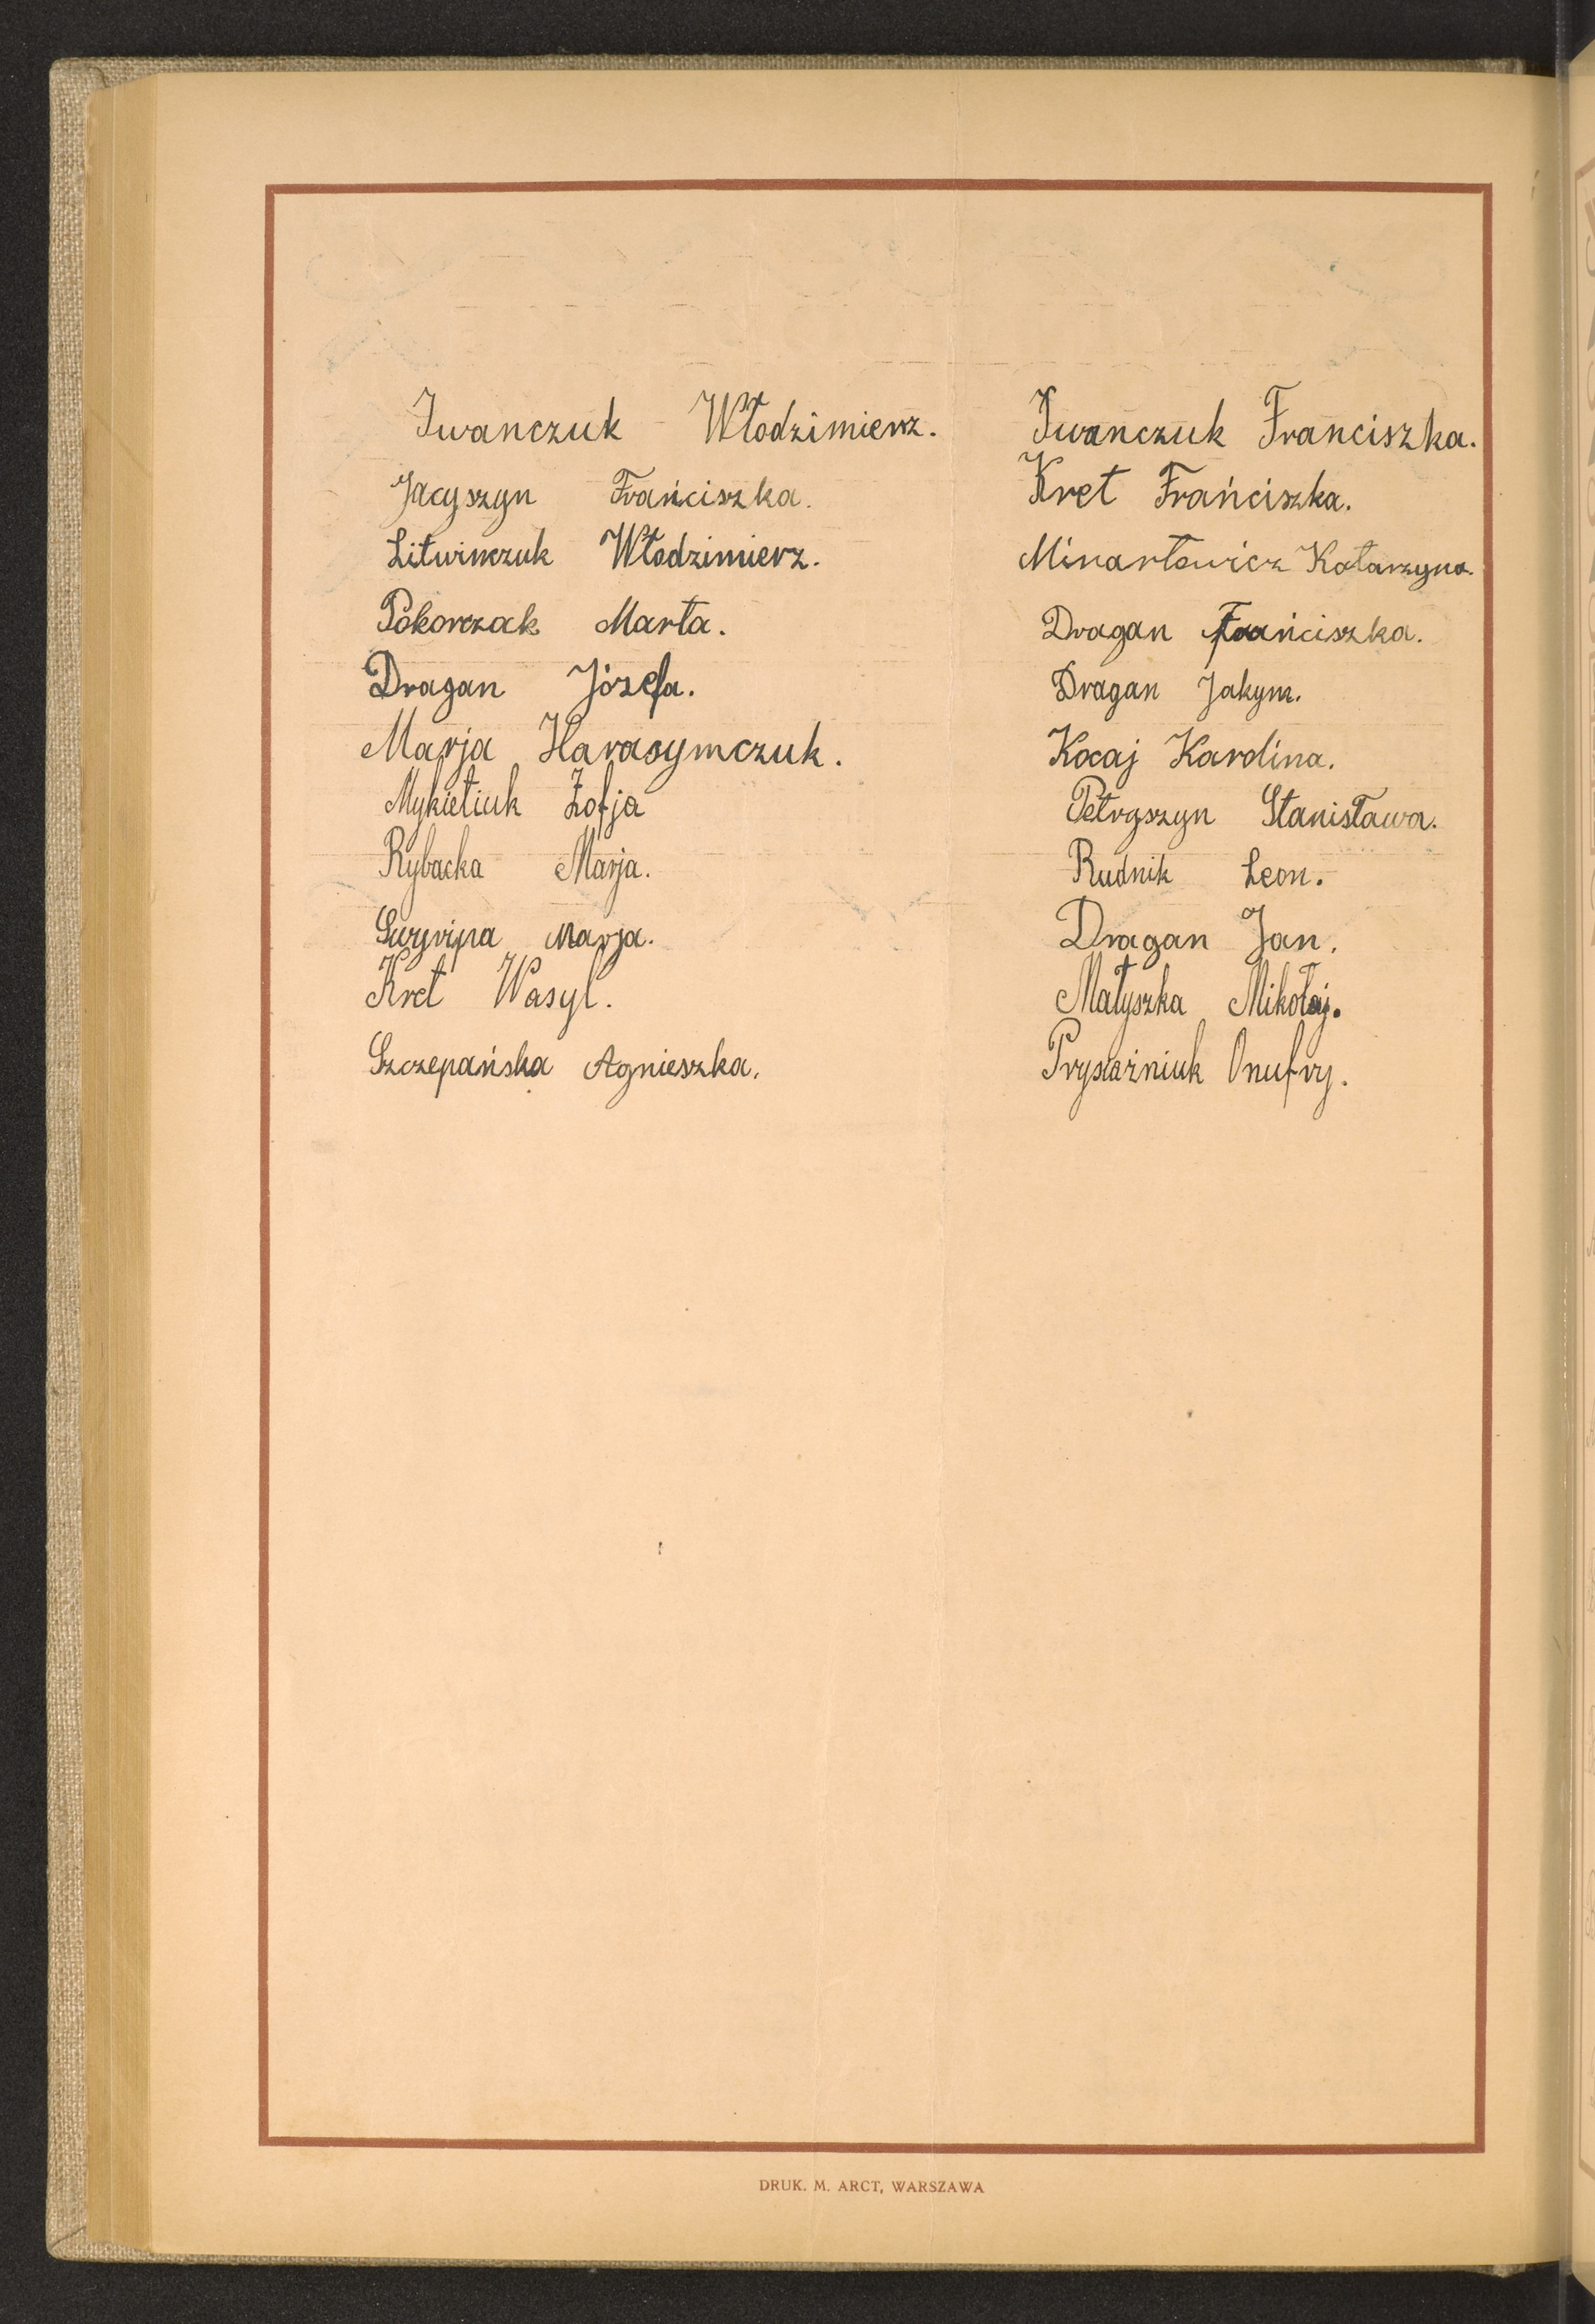 Iwanczuk Włodzimierz.
Jacyszyn Frańciszka.
Litwinczuk Włodzimierz.
Pokorczak Marta.
Dragan Józefa.
Marja Harasymczuk.
Mykietiuk Zofja
Rybacka Marja.
Marja.
Kret Wasyl.
Szczepańska Agnieszka.
Iwanczuk Franciszka.
Kret Frańciszka.
Minartowicz Katarzyna.
Dragan Frańciszka.
Dragan Jakym.
Kocaj Karolina.
Petryszyn Stanisława.
Rudnik Leon.
Dragan Jan.
Małyszka Mikołaj.
Prysiażniuk Onufry.
DRUK. M. ARCT, WARSZAWA